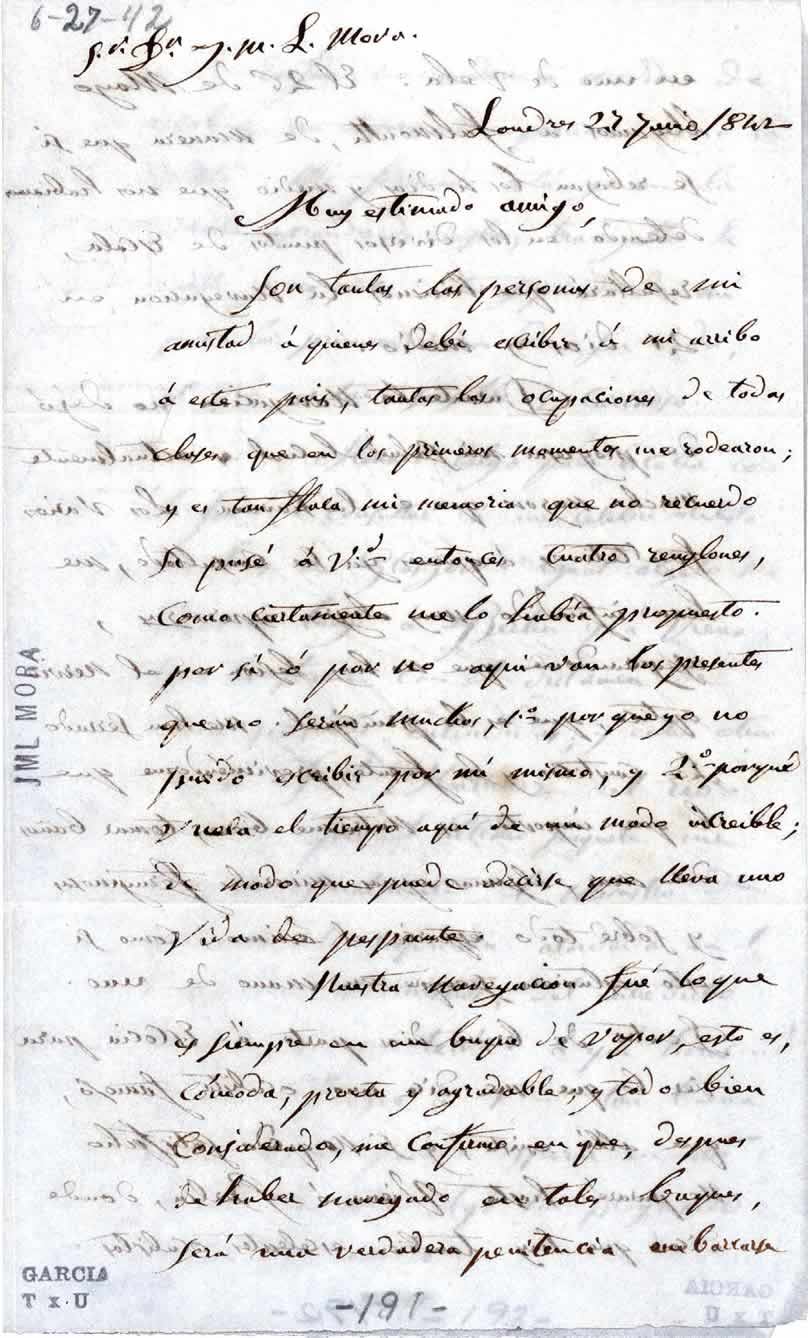 6-27-42
Sr. Dr. J. M. L. Mora.
Londres 27 Junio 1842
Muy estimado amigo,
Son tantas las personas de mi
amistad á quienes debí escribir á mi arribo
á este pais, tantas las ocupaciones de todas
clases que en los primeros momentos me rodearon;
y es tan flaca mi memoria que no recuerdo
si pusé á V. entonces cuatro renglones,
como ciertamente me lo había propuesto.
por sí ó por no aqui van los presentes
que no serán muchos, 1.º porque yo no
puedo escribir por mí mismo, y 2.º porque
vuela el tiempo aquí de un modo increible;
de modo que puede decirse que lleva uno
vida de pespunte.
Nuestra navegacion fué lo que
es siempre en un buque de vapor, esto es,
cómoda, pronta y agradable, y todo bien
considerado, me confirmé en que, despues
de haber navegado en tales buques,
será una verdadera penitencia embarcarse
JML MORA
GARCIA
T x U
-191-